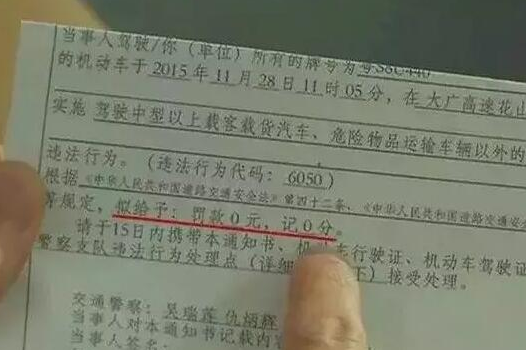 当事人驾驶/你（单位）所有的号牌为粤S6C440
的机动车于2015年11月28日11时05分，在大广高速花山
实施 驾驶中型以上载客载货汽车、危险物品运输车辆以外的
违法行为。（违法行为代码：6050）
根据《中华人民共和国道路交通安全法》第四十二条、《中华人民共和国道路交通安
等规定，拟给予：罚款0元，记0分。
请于15日内携带本通知书、机 车行驶证、机动车驾驶证
警察支队违法行为处理点（详细 下）接受处理。
交通警察：吴瑞莲 仇炳辉
当事人对本通知书记载内容
当事人签名：